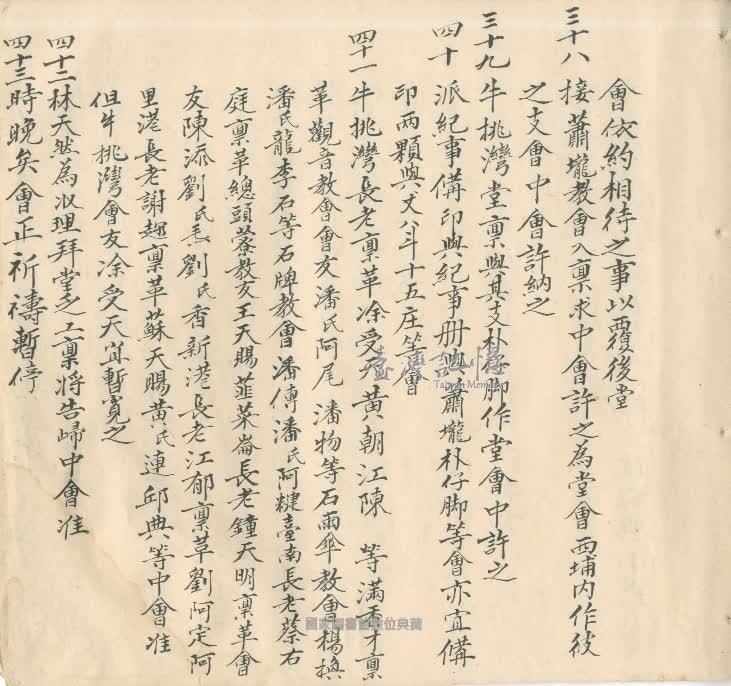 會依約相待之事以覆後堂
三十八 接蕭壠教會入稟求中會許之為堂會西埔內作彼
之支會中會許納之
三十九 牛挑灣堂稟與其支朴仔脚作堂會中許之
四十 派紀事偹印與紀事册與蕭壠朴仔脚等會亦宜偹
印兩顆與丈八斗十五庄等會
四十一 牛挑灣長老稟革凃受天黄朝江陳 等滿秀才稟
革觀音教會會友潘氏阿尾 潘物等石雨傘教會楊換
潘氏龍李石等石牌教會潘傳潘氏阿𤆬臺南長老蔡右
庭稟革總頭藔教友王天賜韮菜崙長老鐘天明稟革會
友陳添劉氏𤆬劉氏香新港長老江郁稟革劉阿定阿
里港長老謝趂稟革蘇天賜黄氏連邱典等中會准
但牛挑灣會友凃受天宜暫寬之
四十二 林天然為㳂理拜堂乏工稟將告歸中會准
四十三 時晚矣會正祈禱暫停
臺灣記憶
Taiwan Memory
國家圖書館數位典藏